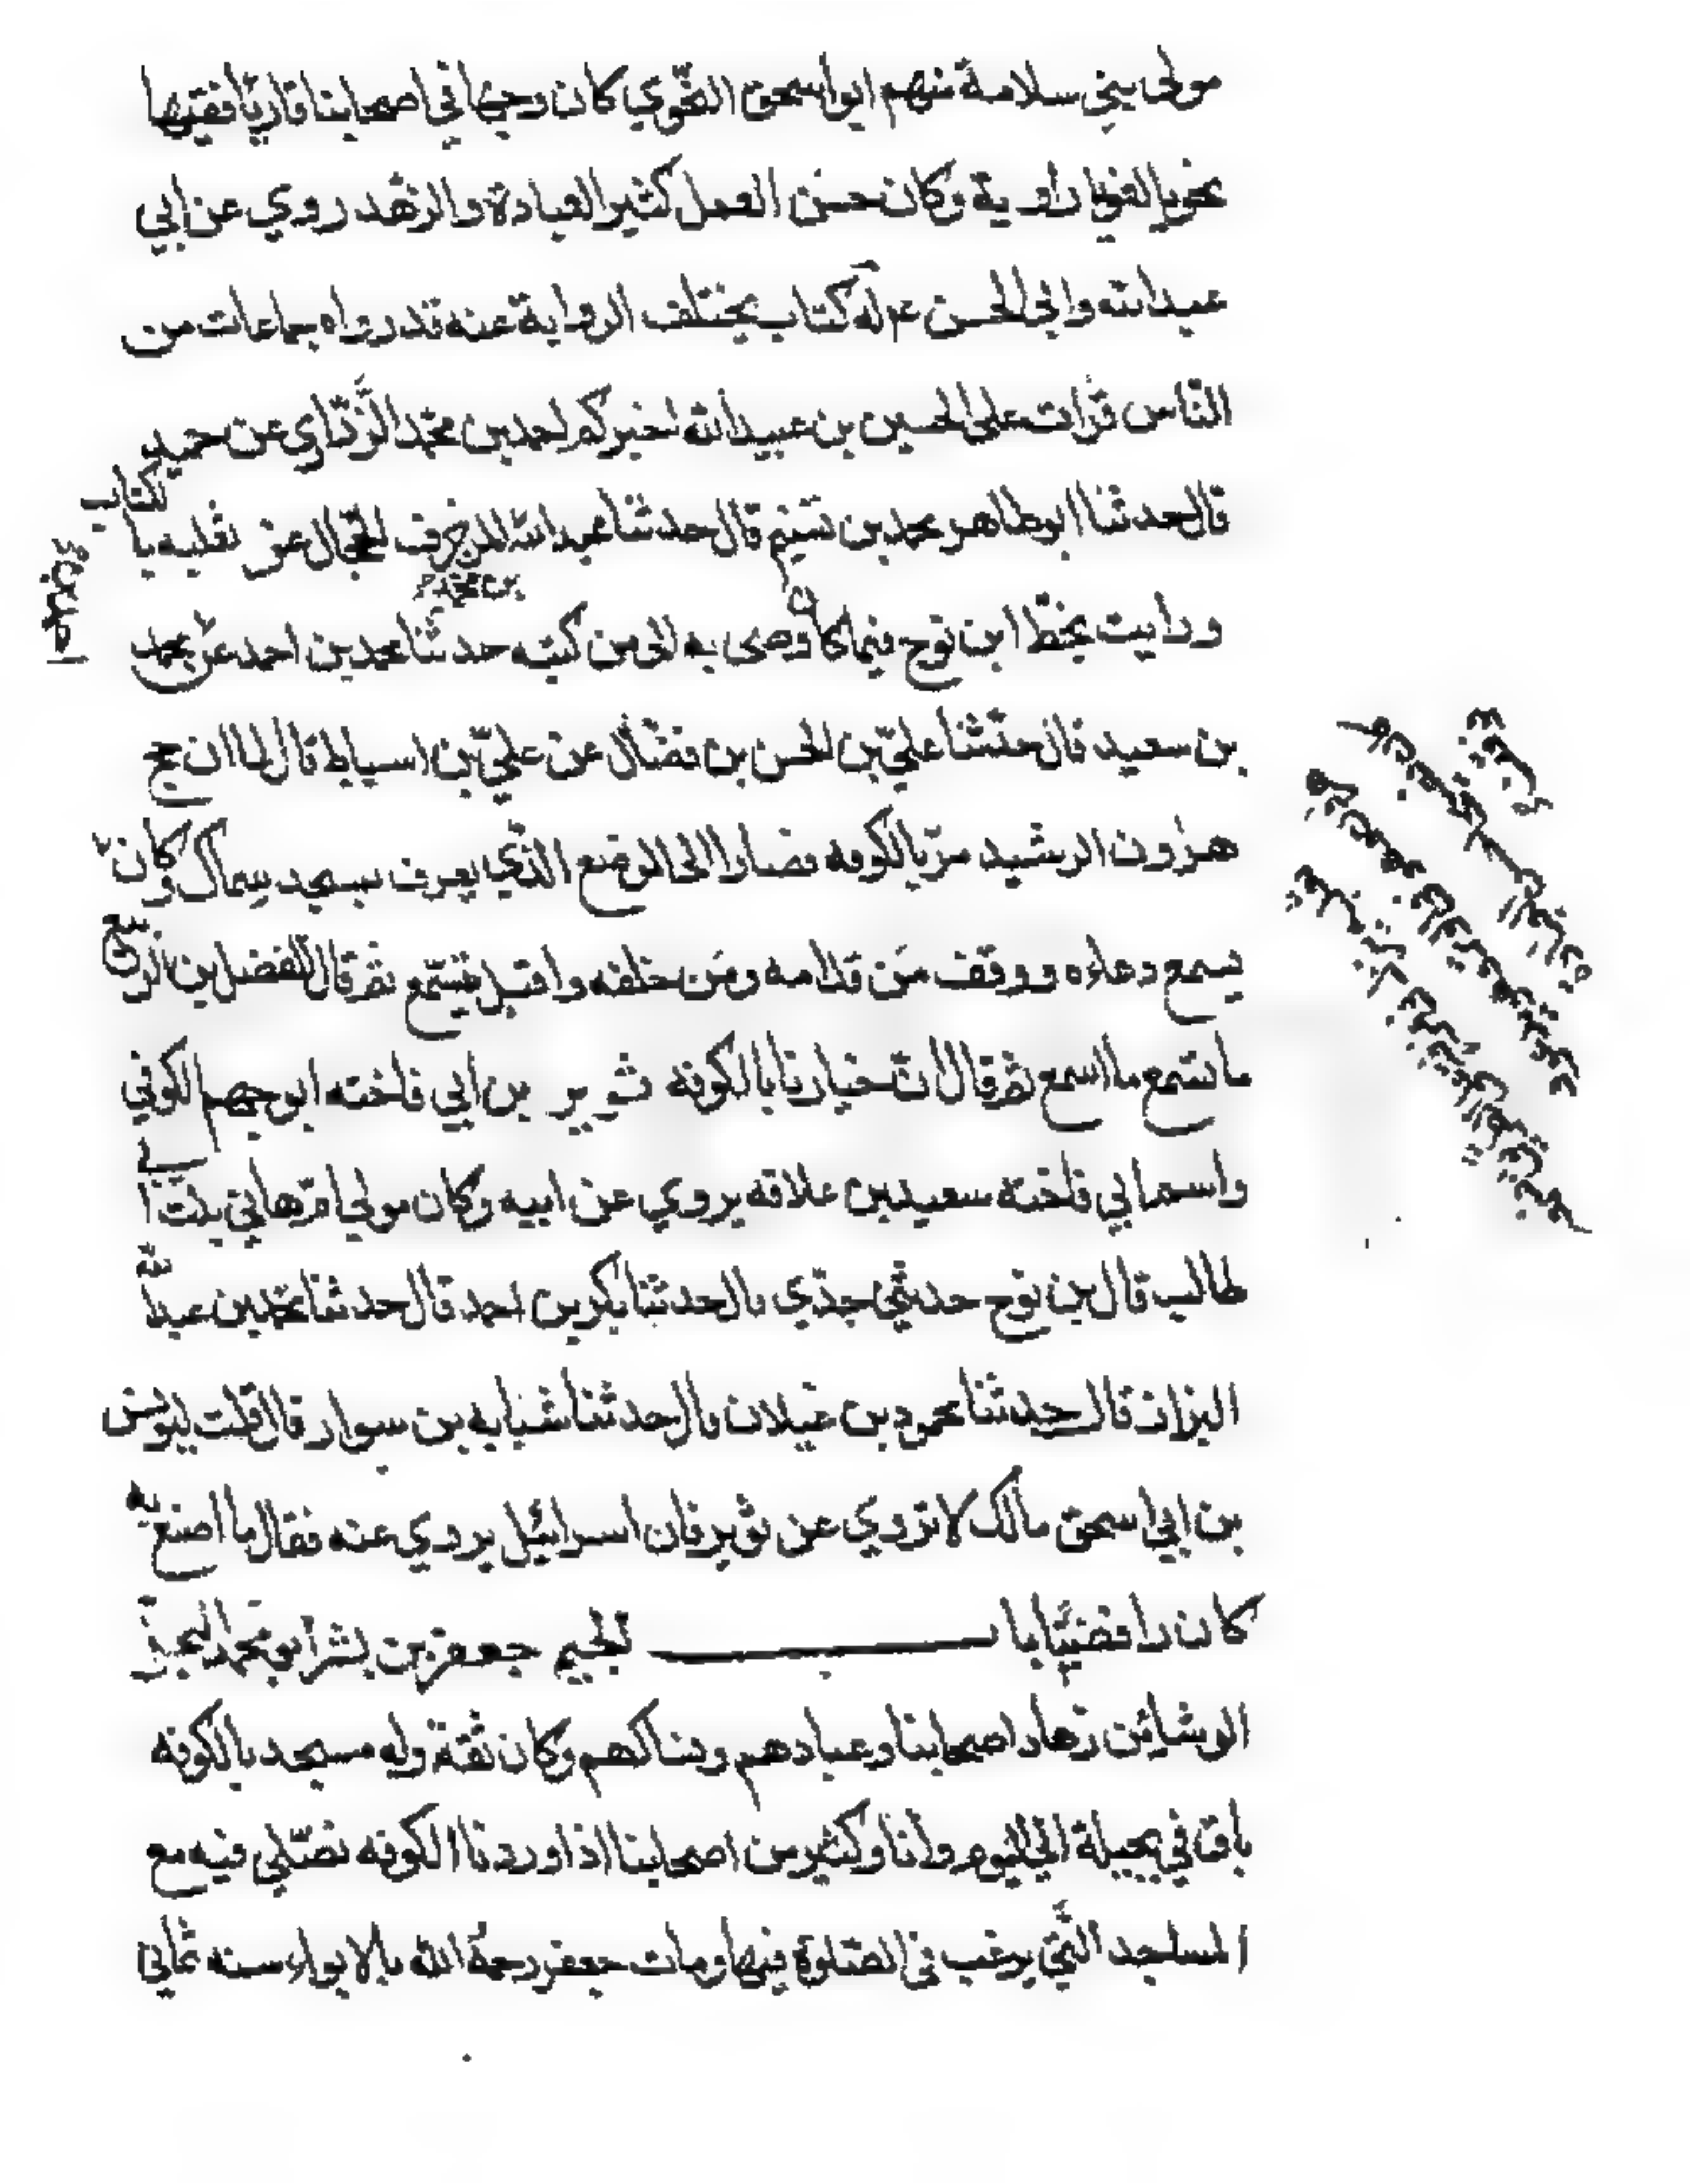 مولى بني سلامة منهم ابواسحق النحوي كان وجها في اصحابنا قاريًا فقيها
نحويا لغويا راوية وكان حسن العمل كثير العبادة والزهد روي عن ابي
عبدالله وابي الحسن ع له كتاب يختلف الرواية عنه قد رواه جماعات من
الناس قرات على الحسين بن عبيدالله اخبركم احمد بن محمد الزراري عن حميد
قال حدثنا ابوطاهر محمد بن تسنيم قال حدثنا عبدالله المزخرف الحجال عن ثعلبه با
لكتاب
بن محمد
ورايت بخط ابن نوح فيما كان وصى به الى من كتبه حدثنا محمد بن احمد عن محمد
بن سعيد قال حدثنا عليّ بن الحسن بن فضّال عن عليّ بن اسباط قال لما ان حج
هرون الرشيد مرّ بالكوفه فصاروا الى الموضع الذي يعرف بمسجد سماك وكان
يسمع دعاءه ووقف مَن قدامه ومَن خلفه واقبل يتسمّع ثم قال للفضل بن الربيع
ما تسمع ما اسمع ثم قال انّ خيارنا بالكوفه ثوير بن ابي فاخته ابوجهم الكوفي
واسم ابي فاخته سعيد بن علاقه يروي عن ابيه وكان مولى امّ هاني بنت ابي
طالب قال بن نوح حدثني جدّي قال حدثنا بكر بن احمد قال حدثنا محمد بن عبدالله
البزاز قال حدثنا محمود بن غيلان قال حدثنا شبابه بن سوار قال قلت ليونس
بن ابي اسحق مالك لا تروي عن ثوير فان اسرائيل يروي عنه فقال ما اصنع به
كان رافضيًّا باب الجيم جعفر بن بشير ابومحمد البجلي
الوشا من زهاد اصحابنا وعبادهم ونساكهم وكان ثقة وله مسجد بالكوفه
باق في بجيلة الى اليوم وانا وكثير من اصحابنا اذا وردنا الكوفه نصّلي فيه مع
المساجد التي يرغب في الصّلوة فيها ومات جعفر رحمه الله بالابواء سنه ثماني